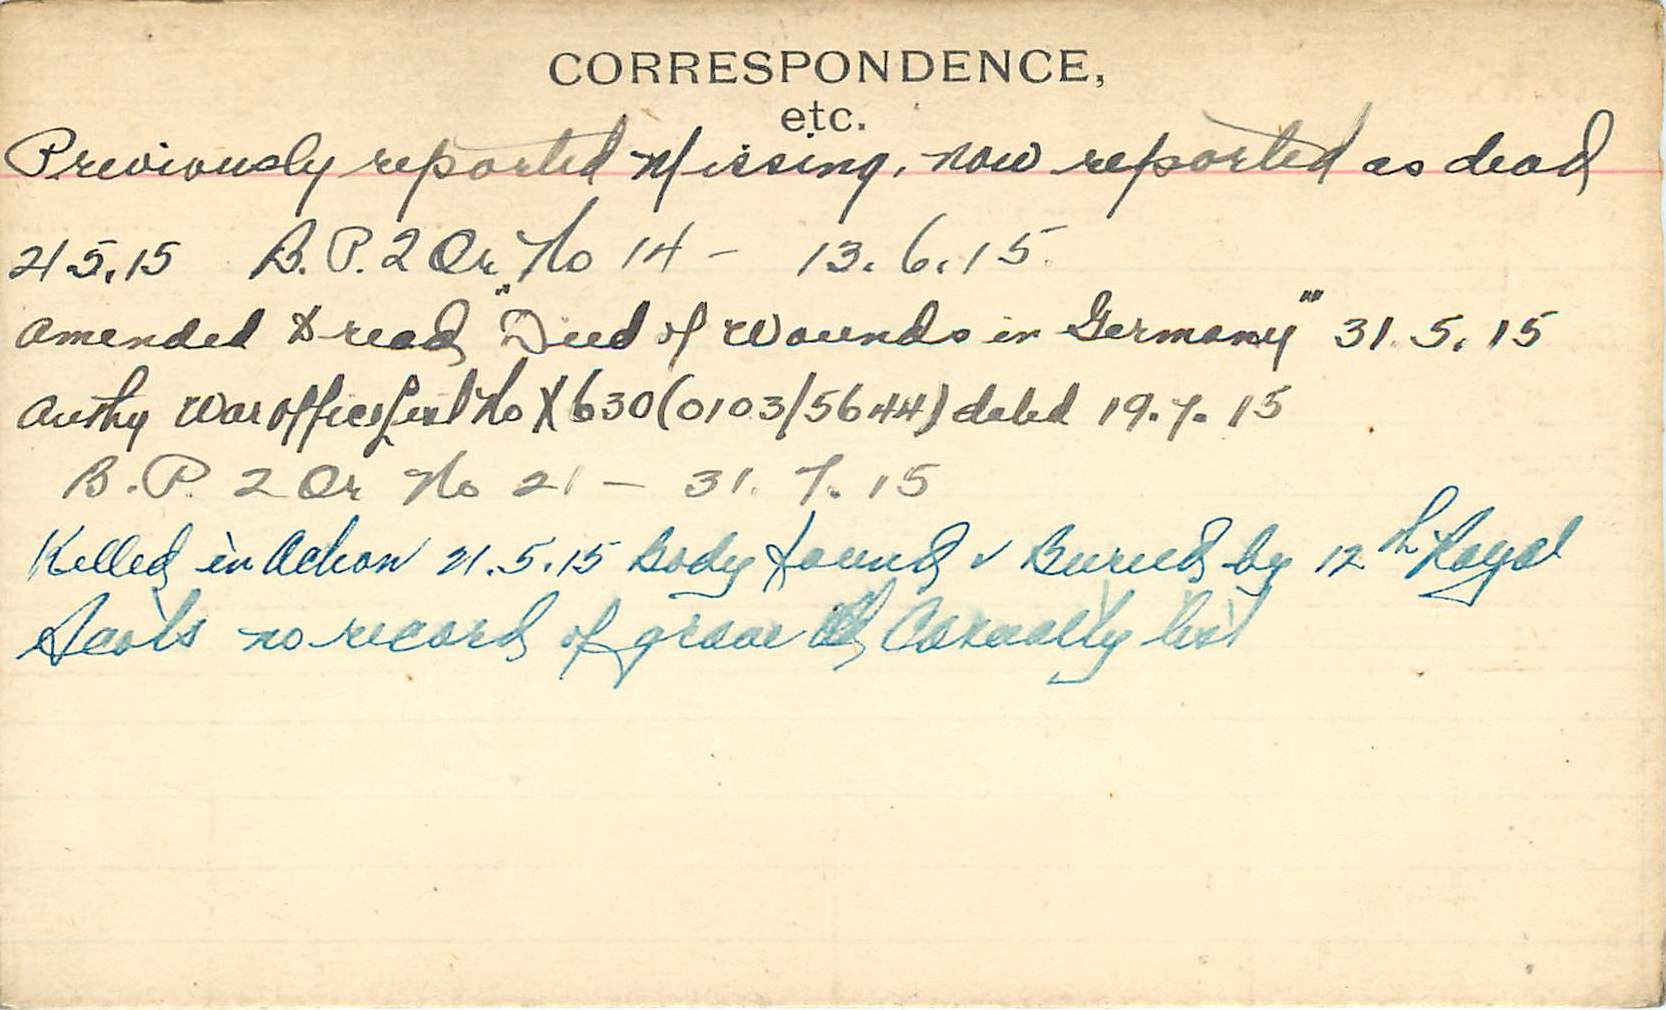 CORRESPONDENCE,
etc.
Previously reported Missing, now reported as dead
21 5.15 B.P. 2 Or. No 14 - 13.6.15.
amended to read "Died of Wounds in Germany" 31.5.15
authy War office List No X630(0103/5644) dated 19.7.15
B.P. 2 Or No 21 - 31.7.15
Killed in Action 21.5.15 Body found & Buried by 12th Royal
Scots no record of grave Casualty list